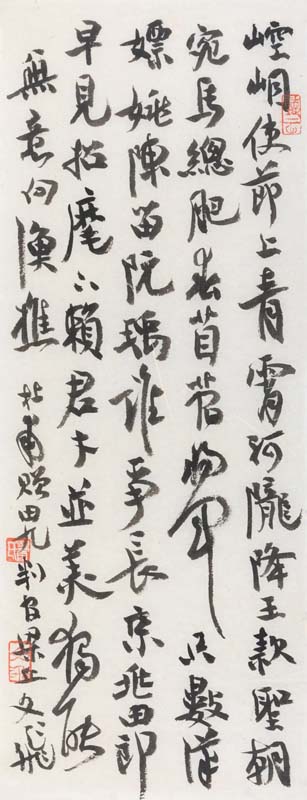 崆峒使節上青霄河隴降王款聖朝
宛馬總肥春苜蓿將軍只數漢
嫖姚陳留阮瑀誰爭長京兆田郎
早見招麾下賴君才並美獨能
無意向漁樵 杜甫贈田九判官梁丘 文飛